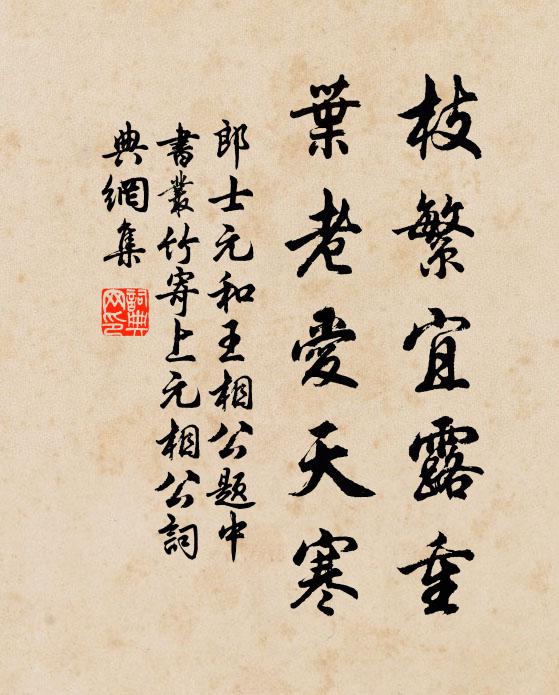 枝繁宜露重
葉老愛天寒
郎士元和王相公題中
書叢竹寄上元相公詞
典網集
詞典
网印